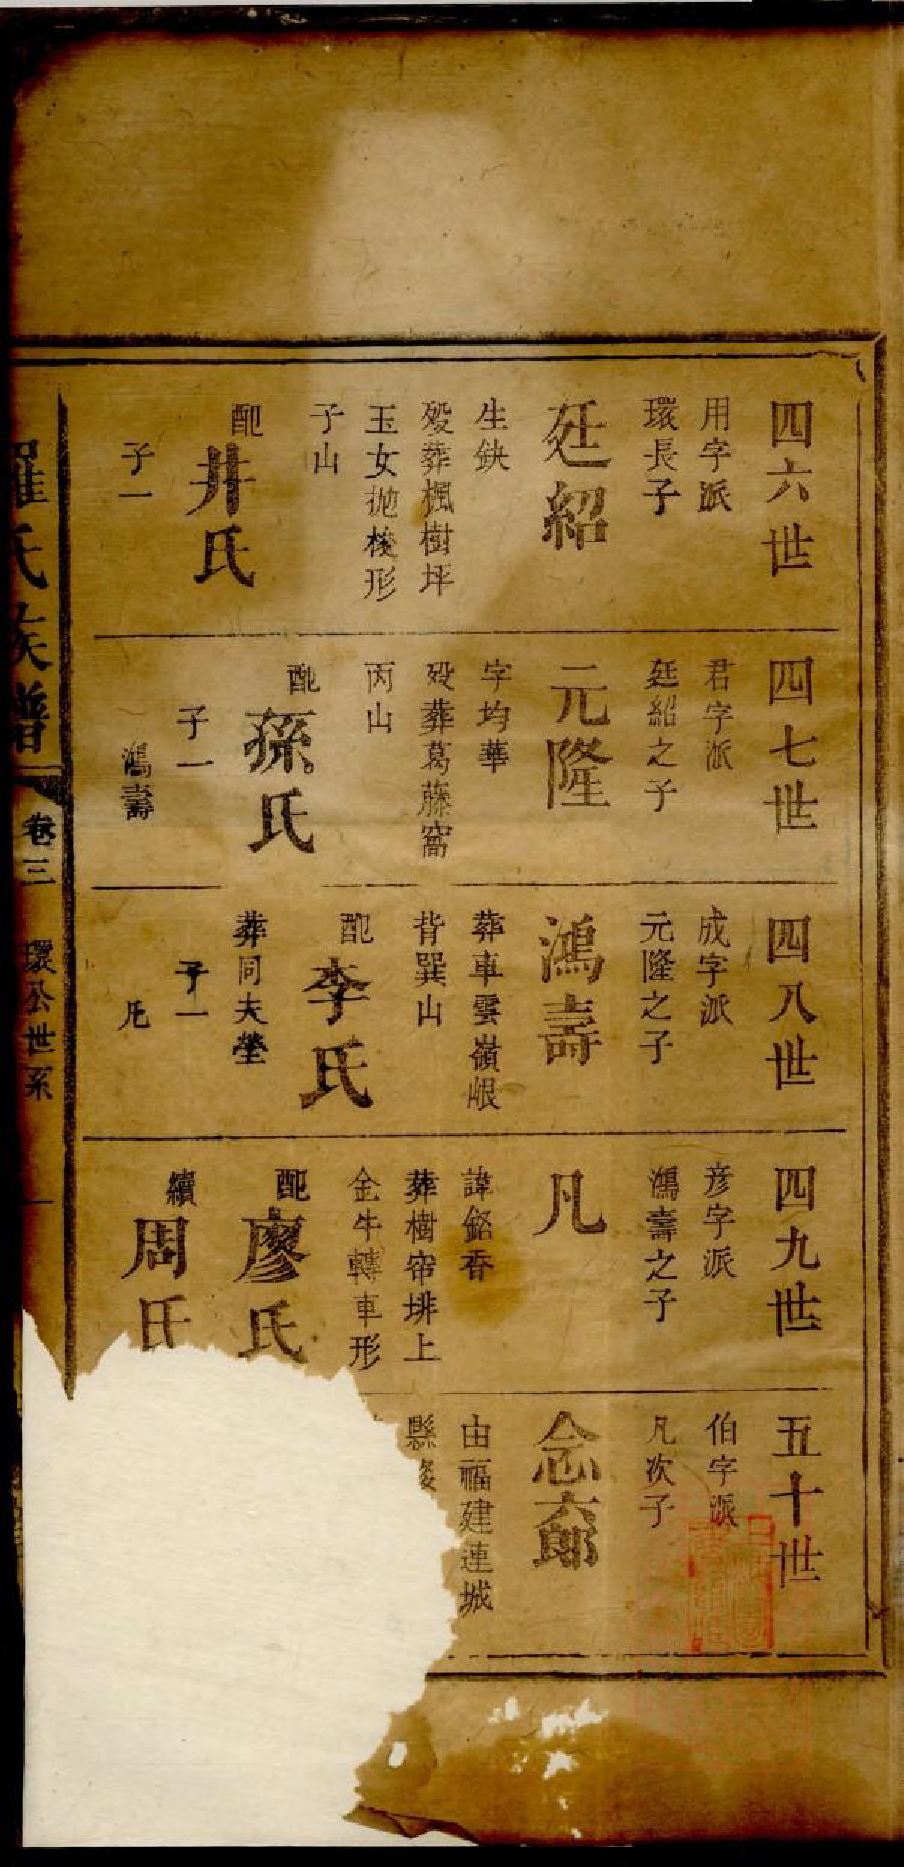 四六世
用字派
環長子
廷紹
生缺
殁葬楓樹坪
玉女抛梭形
子山
配
井氏
子一
四七世
君字派
廷紹之子
元隆
字均華
殁葬葛藤窩
丙山
配
孫氏
子一
鴻壽
四八世
成字派
元隆之子
鴻壽
葬車雲嶺崀
背巽山
配
李氏
葬同夫塋
子一
凡
四九世
彦字派
鴻壽之子
凡
諱銘香
葬樹帘排上
金牛轉車形
配
廖氏
續
周氏
五十世
伯字派
凡次子
念六郎
由福建連城
縣
羅氏族譜
卷三
環公世系
一